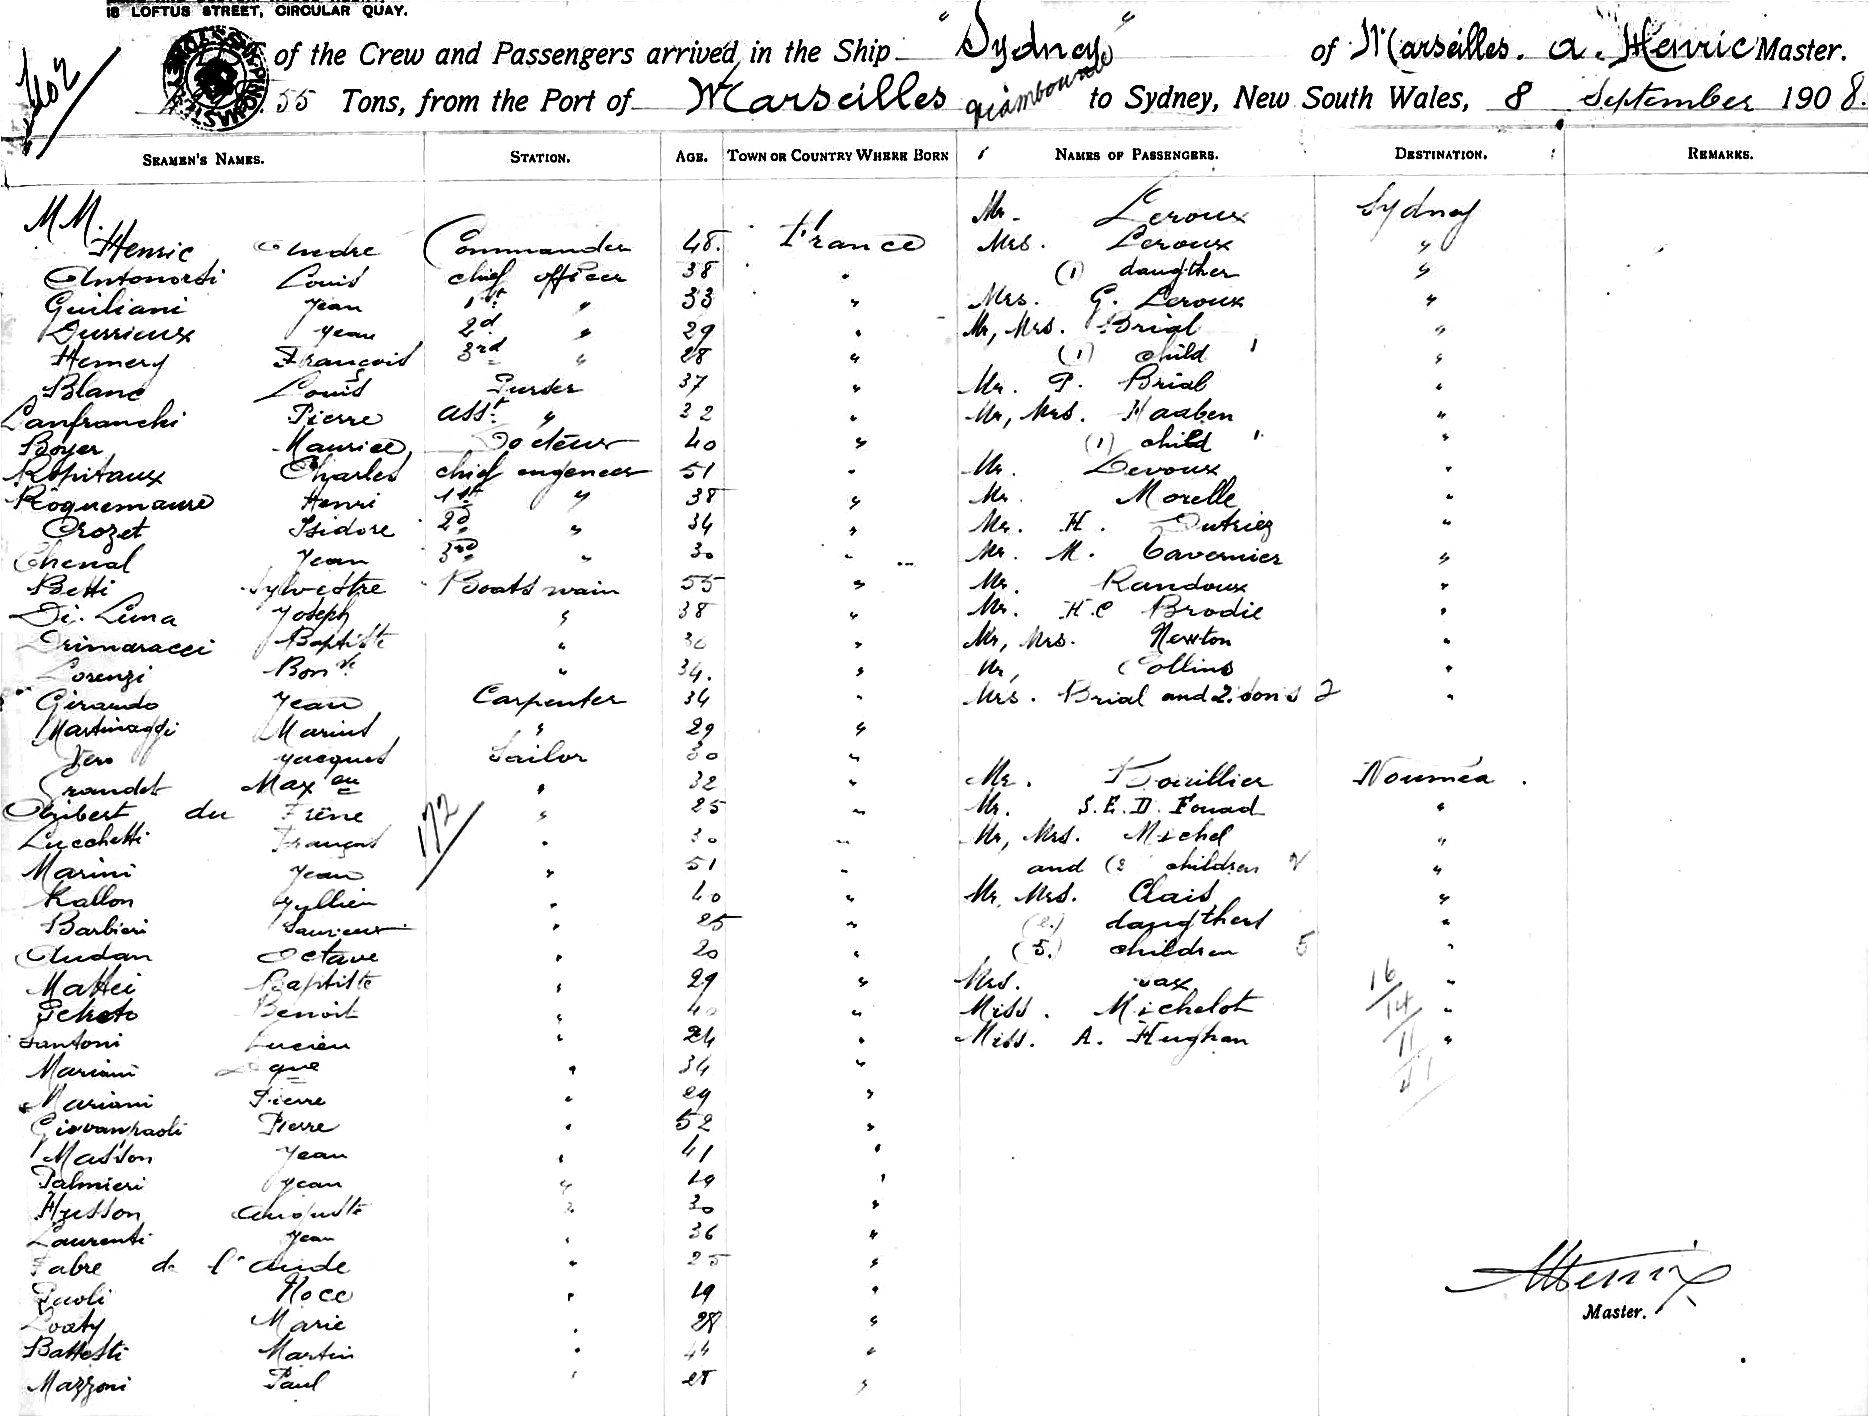 18 LOFTUS STREET, CIRCULAR QUAY.
of the Crew and Passengers arrived in the Ship "Sydney" of Marseilles. A. Henric Master.
55 Tons, from the Port of Marseilles to Sydney, New South Wales, 8 September 1908.
SEAMEN'S NAMES. STATION. AGE. TOWN OR COUNTRY WHERE BORN NAMES OF PASSENGERS. DESTINATION. REMARKS.
MM. Mr. Leroux Sydney
Henric André Commander 48. France Mrs. Leroux "
Antonorsi Louis chief officer 38 " (1) daugther "
Guiliani Jean 1st " 33 " Mrs. G. Leroux "
Durrieux Jean 2d " 29 " Mr, Mrs. Brial "
Hemery François 3rd " 28 " (1) child 1 "
Blanc Louis Purser 37 " Mr. P. Brial "
Lanfranchi Pierre asst. " 32 " Mr, Mrs. Haaben "
Boyer Maurice Docteur 40 " (1) child 1 "
Ropitaux Charles chief engeneer 51 " Mr. Levoux "
Roquemaure Henri 1st " 38 " Mr. Morelle "
Crozet Isidore 2d " 34 " Mr. H. Dutriez "
Chenal Jean 3rd " 30 " Mr. M. Tavernier "
Betti Sylvestre Boatswain 55 " Mr. Randoux "
Di. Luna Joseph " 38 " Mr. H.C Brodie "
Drimaracci Baptiste " " Mr, Mrs. Newton "
Lorenzi Bonve. " 34. " Mr, Collins "
Giraudo Jean Carpenter 34 " Mrs. Brial and 2. sons 2 "
Martinaggi Marius " 29 "
Jacques Sailor 30 "
Grandet Max en " 32 " Mr. Nouméa.
du Frêne " 25 " Mr. S.E.D. Fouad "
Lucchetti François " 30 " Mr, Mrs. Michel "
Marini Jean " 51 " and (2 children 2 "
172
Rallon Jullien " 40 " Mr. Mrs. Clais "
Barbieri " 25 " (2.) daugthers "
Audan Octave " 20 " (5.) children 5 "
Mattei Baptiste " 29 " Mrs. "
Benoit " 40 " Miss. Michelot "
Santoni Lucien " 24 " Miss. A. Hughan "
16
14
11
41
Mariani " 34 "
Mariani Pierre " 29 "
Giovanpaoli Pierre " 52 "
Masson Jean " 41 "
Palmieri Jean " 19 "
Husson Auguste " 30 "
Laurenti Jean " 36 "
Fabre de l'Aude " 25 "
Paoli Noce " 19 "
Marie " 28 "
Battesti Martin " 44 "
Mazzoni Paul " 28 "
AHenric
Master.